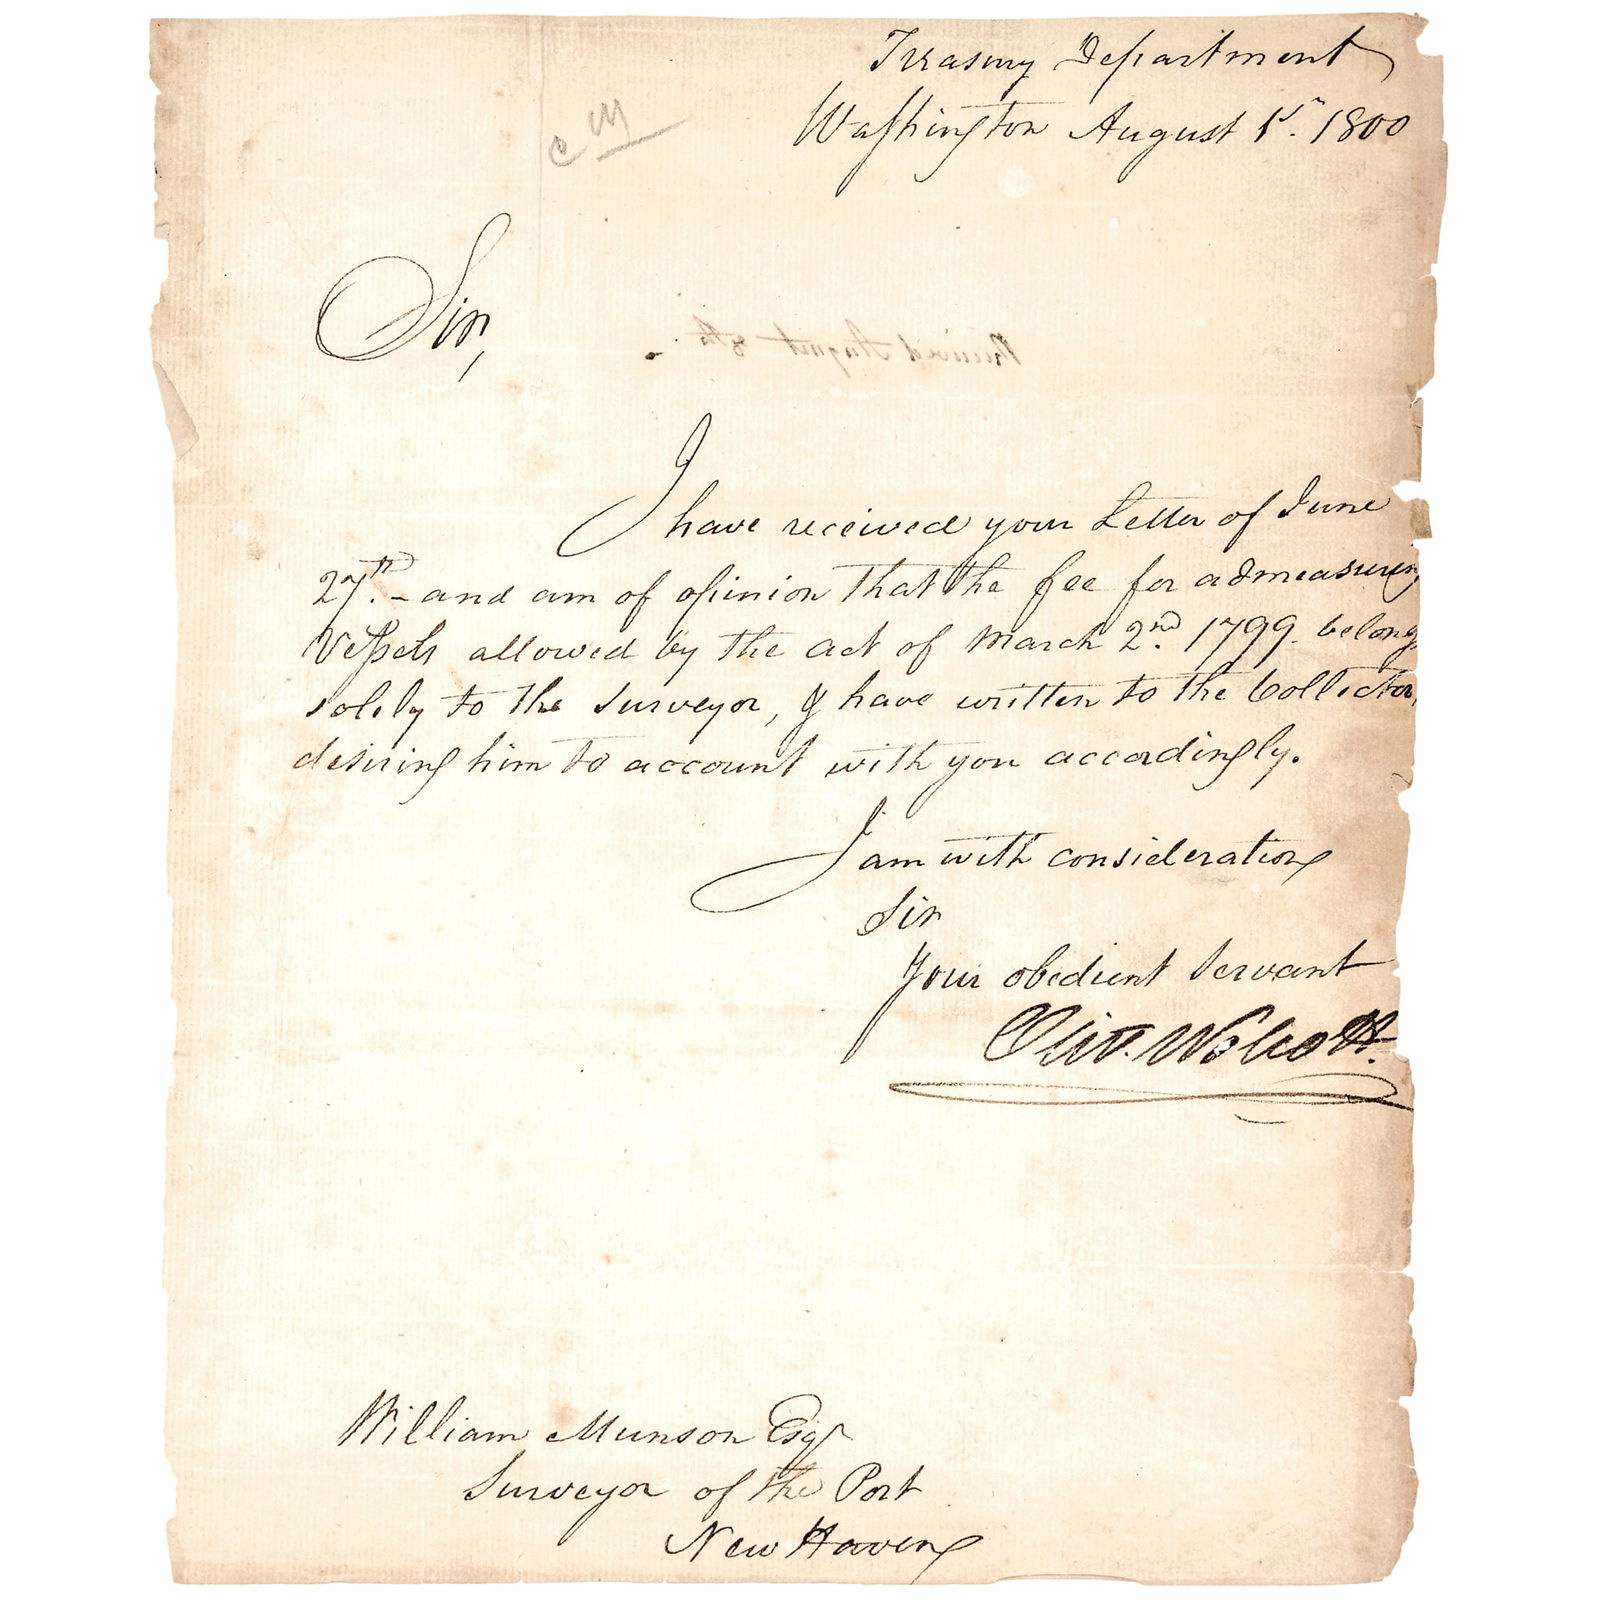 Treasury Department
Washington August 1st. 1800
Sir,
I have received your Letter of June
27th. - and am of opinion that the fee for admeasuring
Vessels allowed by the act of March 2nd. 1799. belong
solely to the surveyor, & have written to the Collector,
desiring him to account with you accordingly.
I am with consideration
Sir
Your obedient Servant
Oliv. Wolcott.
William Munson Esqr
Surveyor of the Port
New Haven